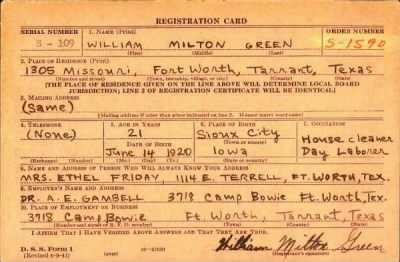 REGISTRATION CARD
SERIAL NUMBER 1. NAME (Print) ORDER NUMBER
S-109 WILLIAM MILTON GREEN S-1590
(First) (Middle) (Last)
2. PLACE OF RESIDENCE (Print)
1305 Missouri, Fort Worth, Tarrant, Texas
(Number and street) (Town, township, village, or city) (County) (State)
[THE PLACE OF RESIDENCE GIVEN ON THE LINE ABOVE WILL DETERMINE LOCAL BOARD
JURISDICTION; LINE 2 OF REGISTRATION CERTIFICATE WILL BE IDENTICAL]
3. MAILING ADDRESS
(Same)
[Mailing address if other than place indicated on line 2. If same insert word same]
4. TELEPHONE 5. AGE IN YEARS 6. PLACE OF BIRTH 7. OCCUPATION
(None) 21 Sioux City House cleaner
DATE OF BIRTH (Town or county)
June 14 1920 Iowa Day Laborer
(Exchange) (Number) (Mo.) (Day) (Yr.) (State or country)
8. NAME AND ADDRESS OF PERSON WHO WILL ALWAYS KNOW YOUR ADDRESS
MRS. ETHEL FRIDAY, 1114 E. TERRELL, FT. WORTH, TEX.
9. EMPLOYER'S NAME AND ADDRESS
DR. A. E. GAMBELL 3718 Camp Bowie Ft. Worth, Tex.
10. PLACE OF EMPLOYMENT OR BUSINESS
3718 Camp Bowie Ft. Worth, Tarrant, Texas
(Number and street or R. F. D. number) (Town) (County) (State)
I AFFIRM THAT I HAVE VERIFIED ABOVE ANSWERS AND THAT THEY ARE TRUE.
D. S. S. Form 1
(Revised 6-9-41) (over) William Milton Green